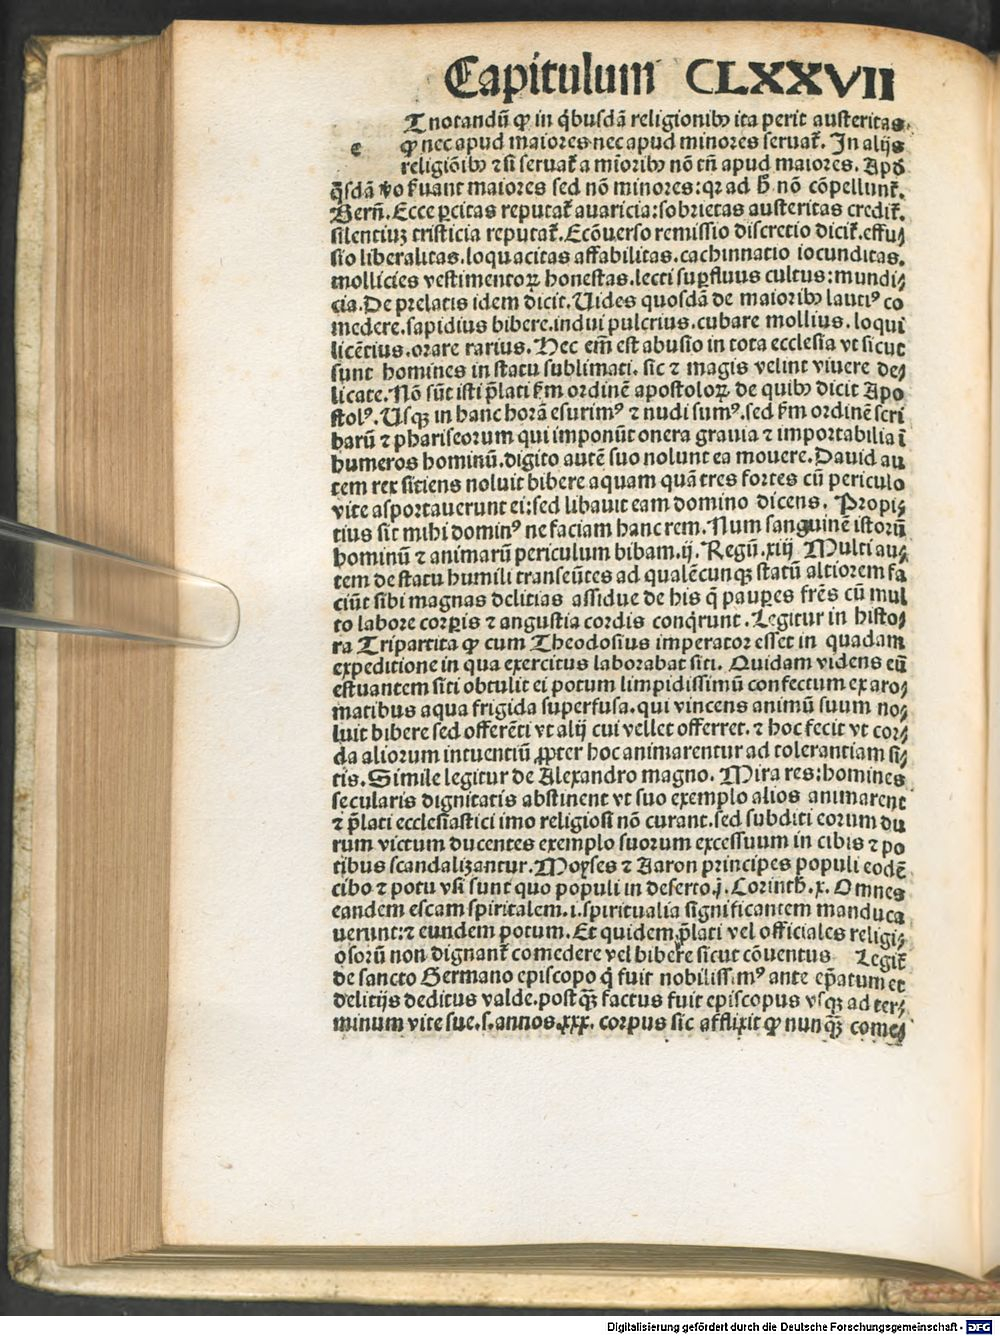 Capitulum CLXXVII
e Tnotandū ꝙ in q̈busdā religionibꝰ ita perit austeritas.
ꝙ nec apud maiores nec apud minores seruat᷑. In alijs
religiōibꝫ ⁊ si seruat᷑ a mīoribꝫ nō tn̄ apud maiores. Apd̄
q̄sdā ꝟo ẜuant maiores sed nō minores: qꝛ ad h̄ nō cōpellunt᷑.
Bern̄. Ecce ꝑcitas reputat᷑ auaricia: sobrietas austeritas credit᷑.
silentiuꝫ tristicia reputat᷑. Ecōuerso remissio discretio dicit᷑. effu⸗
sio liberalitas. loquacitas affabilitas. cachinnatio iocunditas.
mollicies vestimentoꝝ honestas. lecti suꝑfluus cultus: mundi⸗
cia. De prelatis idem dicit. Uides quosdā de maioribꝫ lautiꝰ co
medere. sapidius bibere. indui pulcrius. cubare mollius. loqui
licētius. orare rarius. Hec em̄ est abusio in tota ecclesia vt sicut
sunt homines in statu sublimati. sic ⁊ magis velint viuere de⸗
licate. Nō sūt isti p̄lati ẜm ordinē apostoloꝝ de quibꝫ dicit Apo
stolꝰ. Usqꝫ in hanc horā esurimꝰ ⁊ nudi sumꝰ. sed ẜm ordinē scri
barū ⁊ phariseorum qui imponūt onera grauia ⁊ importabilia ī
humeros hominū. digito autē suo nolunt ea mouere. Dauid au
tem rex sitiens noluit bibere aquam quā tres fortes cū periculo
vite asportauerunt ei: sed libauit eam domino dicens. Propi⸗
tius sit mihi dominꝰ ne faciam hanc rem. Num sanguinē istorū
hominū ⁊ animarū periculum bibam. ij. Regū. xiij Multi au⸗
tem de statu humili transeūtes ad qualēcunqꝫ statū altiorem fa
ciūt sibi magnas delitias assidue de his q̄ pauꝑes fr̄es cū mul
to labore corꝑis ⁊ angustia cordis conq̇runt. Legitur in histo⸗
ra Tripartita ꝙ cum Theodosius imperator esset in quadam
expeditione in qua exercitus laborabat siti. Quidam videns eū
estuantem siti obtulit ei potum limpidissimū confectum ex aro⸗
matibus aqua frigida superfusa. qui vincens animū suum no⸗
luit bibere sed offerēti vt alij cui vellet offerret. ⁊ hoc fecit vt cor⸗
da aliorum intuentiū ꝓpter hoc animarentur ad tolerantiam si⸗
tis. Simile legitur de Alexandro magno. Mira res: homines
secularis dignitatis abstinent vt suo exemplo alios animarent
⁊ p̄lati ecclesiastici imo religiosi nō curant. sed subditi eorum du
rum victum ducentes exemplo suorum excessuum in cibis ⁊ po
tibus scandalizantur. Moyses ⁊ Aaron principes populi eodē
cibo ⁊ potu vsi sunt quo populi in deserto. j. Corinth̄. x. Omnes
eandem escam spiritalem. i. spiritualia significantem manduca
uerunt: ⁊ eundem potum. Et quidem p̄lati vel officiales religi⸗
osorū non dignant᷑ comedere vel bibere sicut cōuentus Legit᷑
de sancto Germano episcopo q̇ fuit nobilissimꝰ ante ep̄atum et
delitijs deditus valde. postq̄ꝫ factus fuit episcopus vsqꝫ ad ter⸗
minum vite sue. s. annos. xxx. corpus sic afflixit ꝙ nunq̄ꝫ come⸗
Digitalisierung gefördert durch die Deutsche Forschungsgemeinschaft - DFG